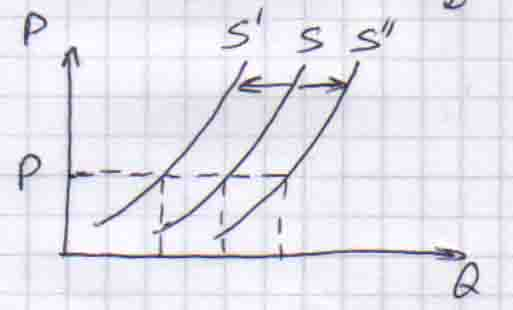 P
S' S S"
P
Q